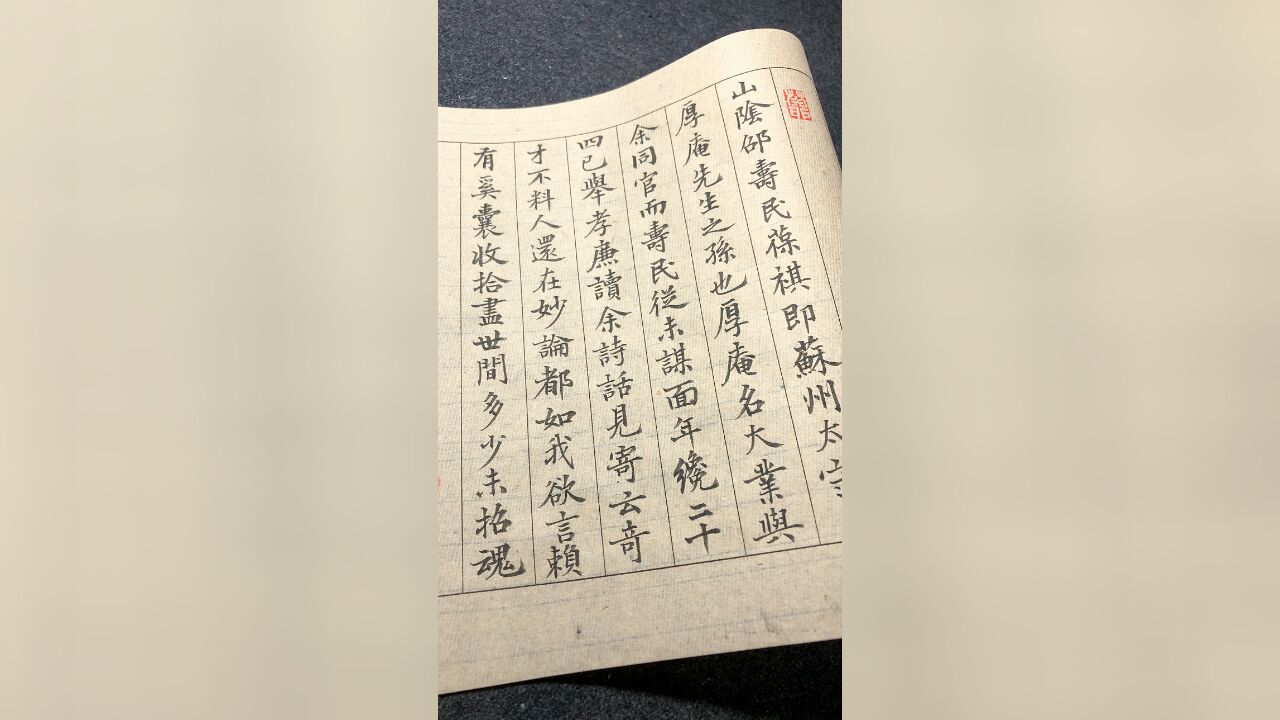 山陰邵壽民葆祺即蘇州太守
厚庵先生之孫也厚庵名大業與
余同官而壽民從未謀面年纔二十
四已舉孝廉讀余詩話見寄云奇
才不料人還在妙論都如我欲言賴
有奚囊收拾盡世間多少未招魂